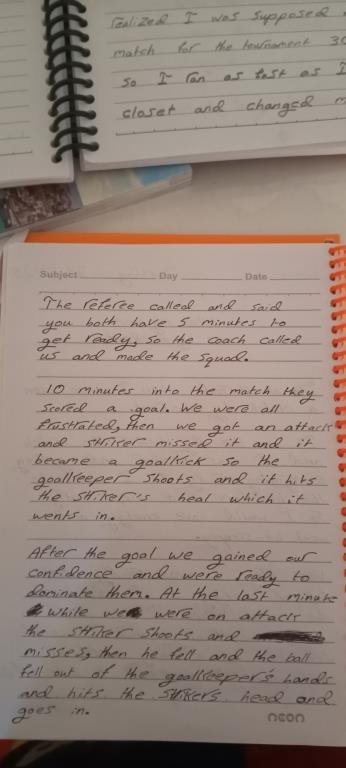 realized I was supposed
match for the tournament 30
so I ran as fast as I
closet and changed m
Subject Day Date
The referee called and said
you both have 5 minutes to
get ready, so the coach called
us and made the squad.
10 minutes into the match they
scored a goal. We were all
frustrated, then we got an attack
and striker missed it and it
became a goalkick so the
goalkeeper shoots and it hits
the striker's heal which it
wents in.
After the goal we gained our
confidence and were ready to
dominate them. At the last minute
while we were on attack
the striker shoots and
misses, then he fell and the ball
fell out of the goalkeeper's hands
and hits the strikers head and
goes in.
neon